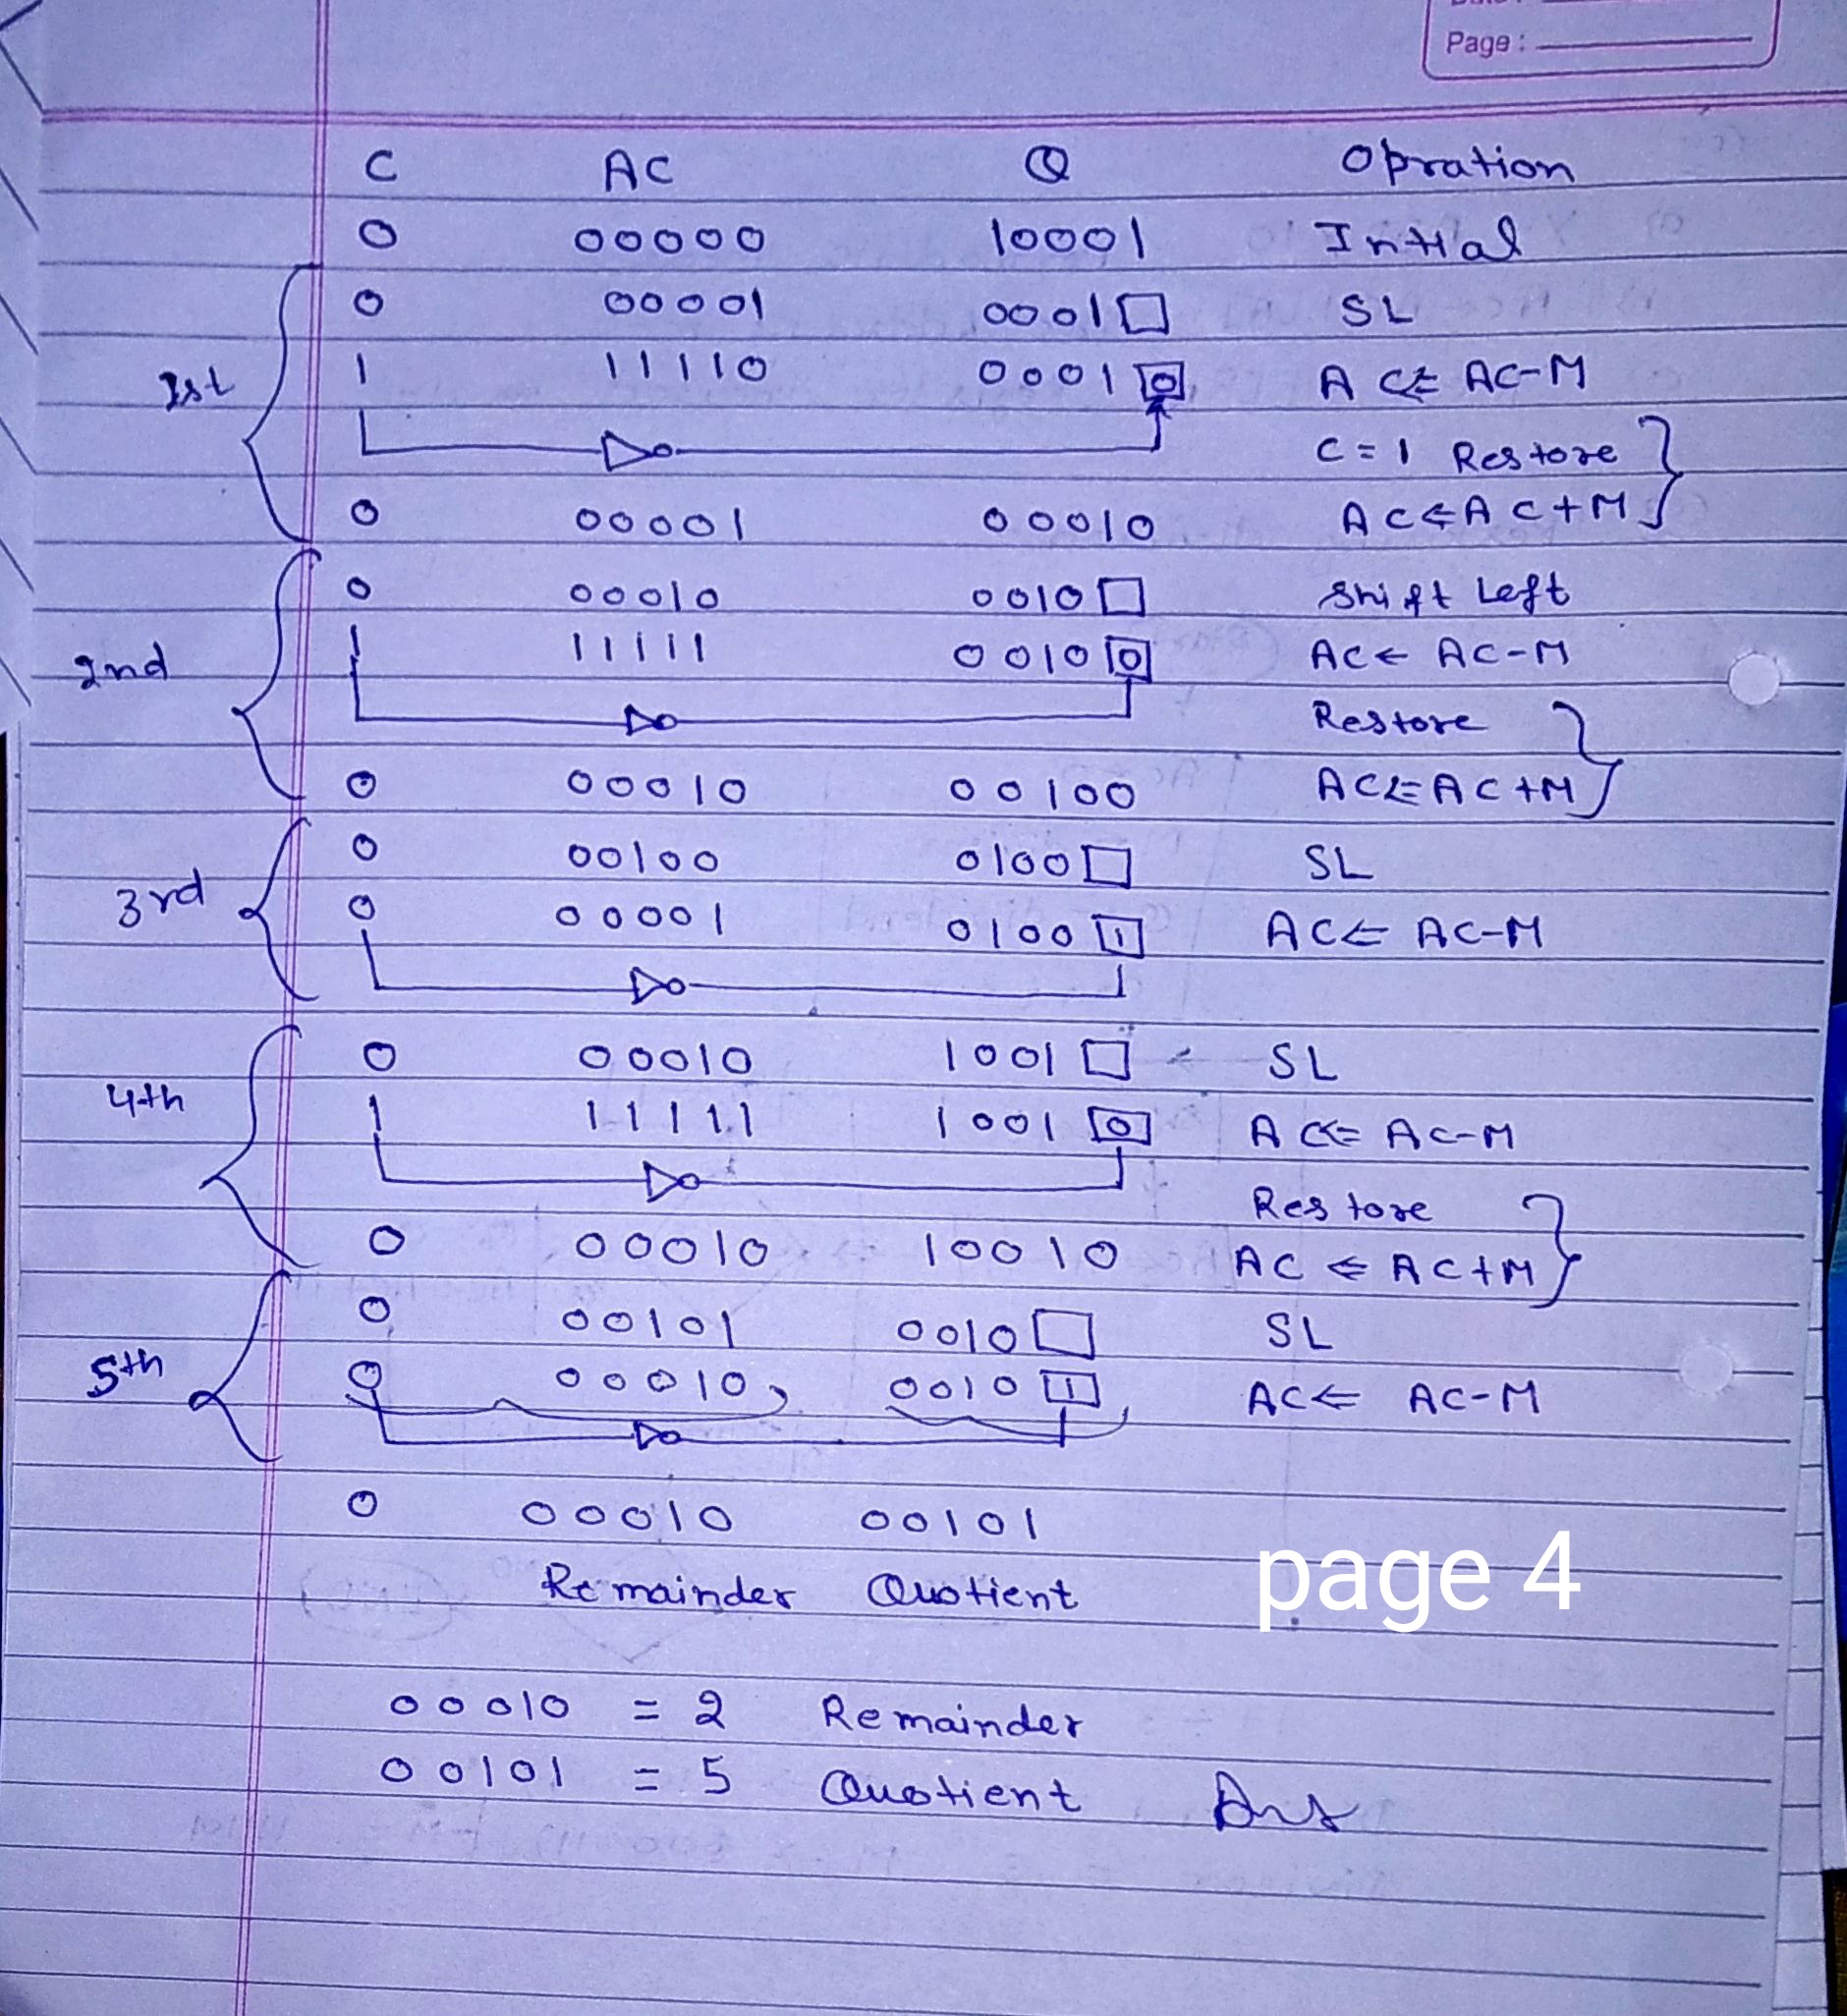 Page :
C AC Q Opration
0 00000 10001 Intial
0 00001 0001□ SL
1st 1 11110 0001 0 AC ⇐ AC-M
C = 1 Restore
0 00001 00010 AC ⇐ AC+M
0 00010 0010□ Shift Left
2nd 1 11111 0010 0 AC ← AC-M
Restore
0 00010 00100 AC ⇐ AC+M
0 00100 0100□ SL
3rd 0 00001 0100 1 AC ⇐ AC-M
0 00010 1001□ SL
4th 1 11111 1001 0 AC ⇐ AC-M
Restore
0 00010 10010 AC ⇐ AC+M
0 00101 0010□ SL
5th 0 00010 0010 1 AC ⇐ AC-M
0 00010 00101
Remainder Quotient
page 4
00010 = 2 Remainder
00101 = 5 Quotient Ans